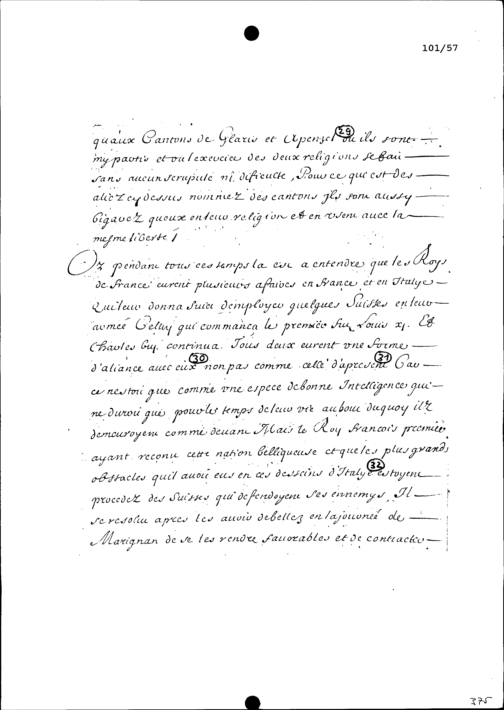 101/57
quaux Cantons de Glaris et Apenzel 29 ou ils sont
my partis et ou lexercice des deux religions se fait
sans aucun scrupule ni dificulté, Pour ce qui est des
aliez cy dessus nommez des cantons Ils sont aussy
bigarez queux en leur religion et en usent avec la
mesme liberté /
Or pendant tous ces temps la est a entendre que les Roys
de france eurent plusieurs affaires en france et en Italye
Qui leur donna suiet demployer quelques Suisses en leur
armeé Celuy qui commança le premier fut Louis xj. Et
Charles 8uy. continua. Tous deux eurent une forme
d'aliance avec eux 30 non pas comme celle d'apresent 31 Car
ce nestoit que comme une espece de bonne Intelligence qui
ne duroit que pour les temps de leur vie au bout duquoy ilz
demeuroyent comme devant Mais le Roy francois premier
ayant reconu cette nation belliqueuse et que les plus grands
obstacles quil avoit eus en ces desseins d'Italye 32 estoyent
procedez des Suisses qui defendoyent ses ennemys Il
se resolut apres les avoir debellez en la journeé de
Marignan de se les rendre favorables et de contracter
375